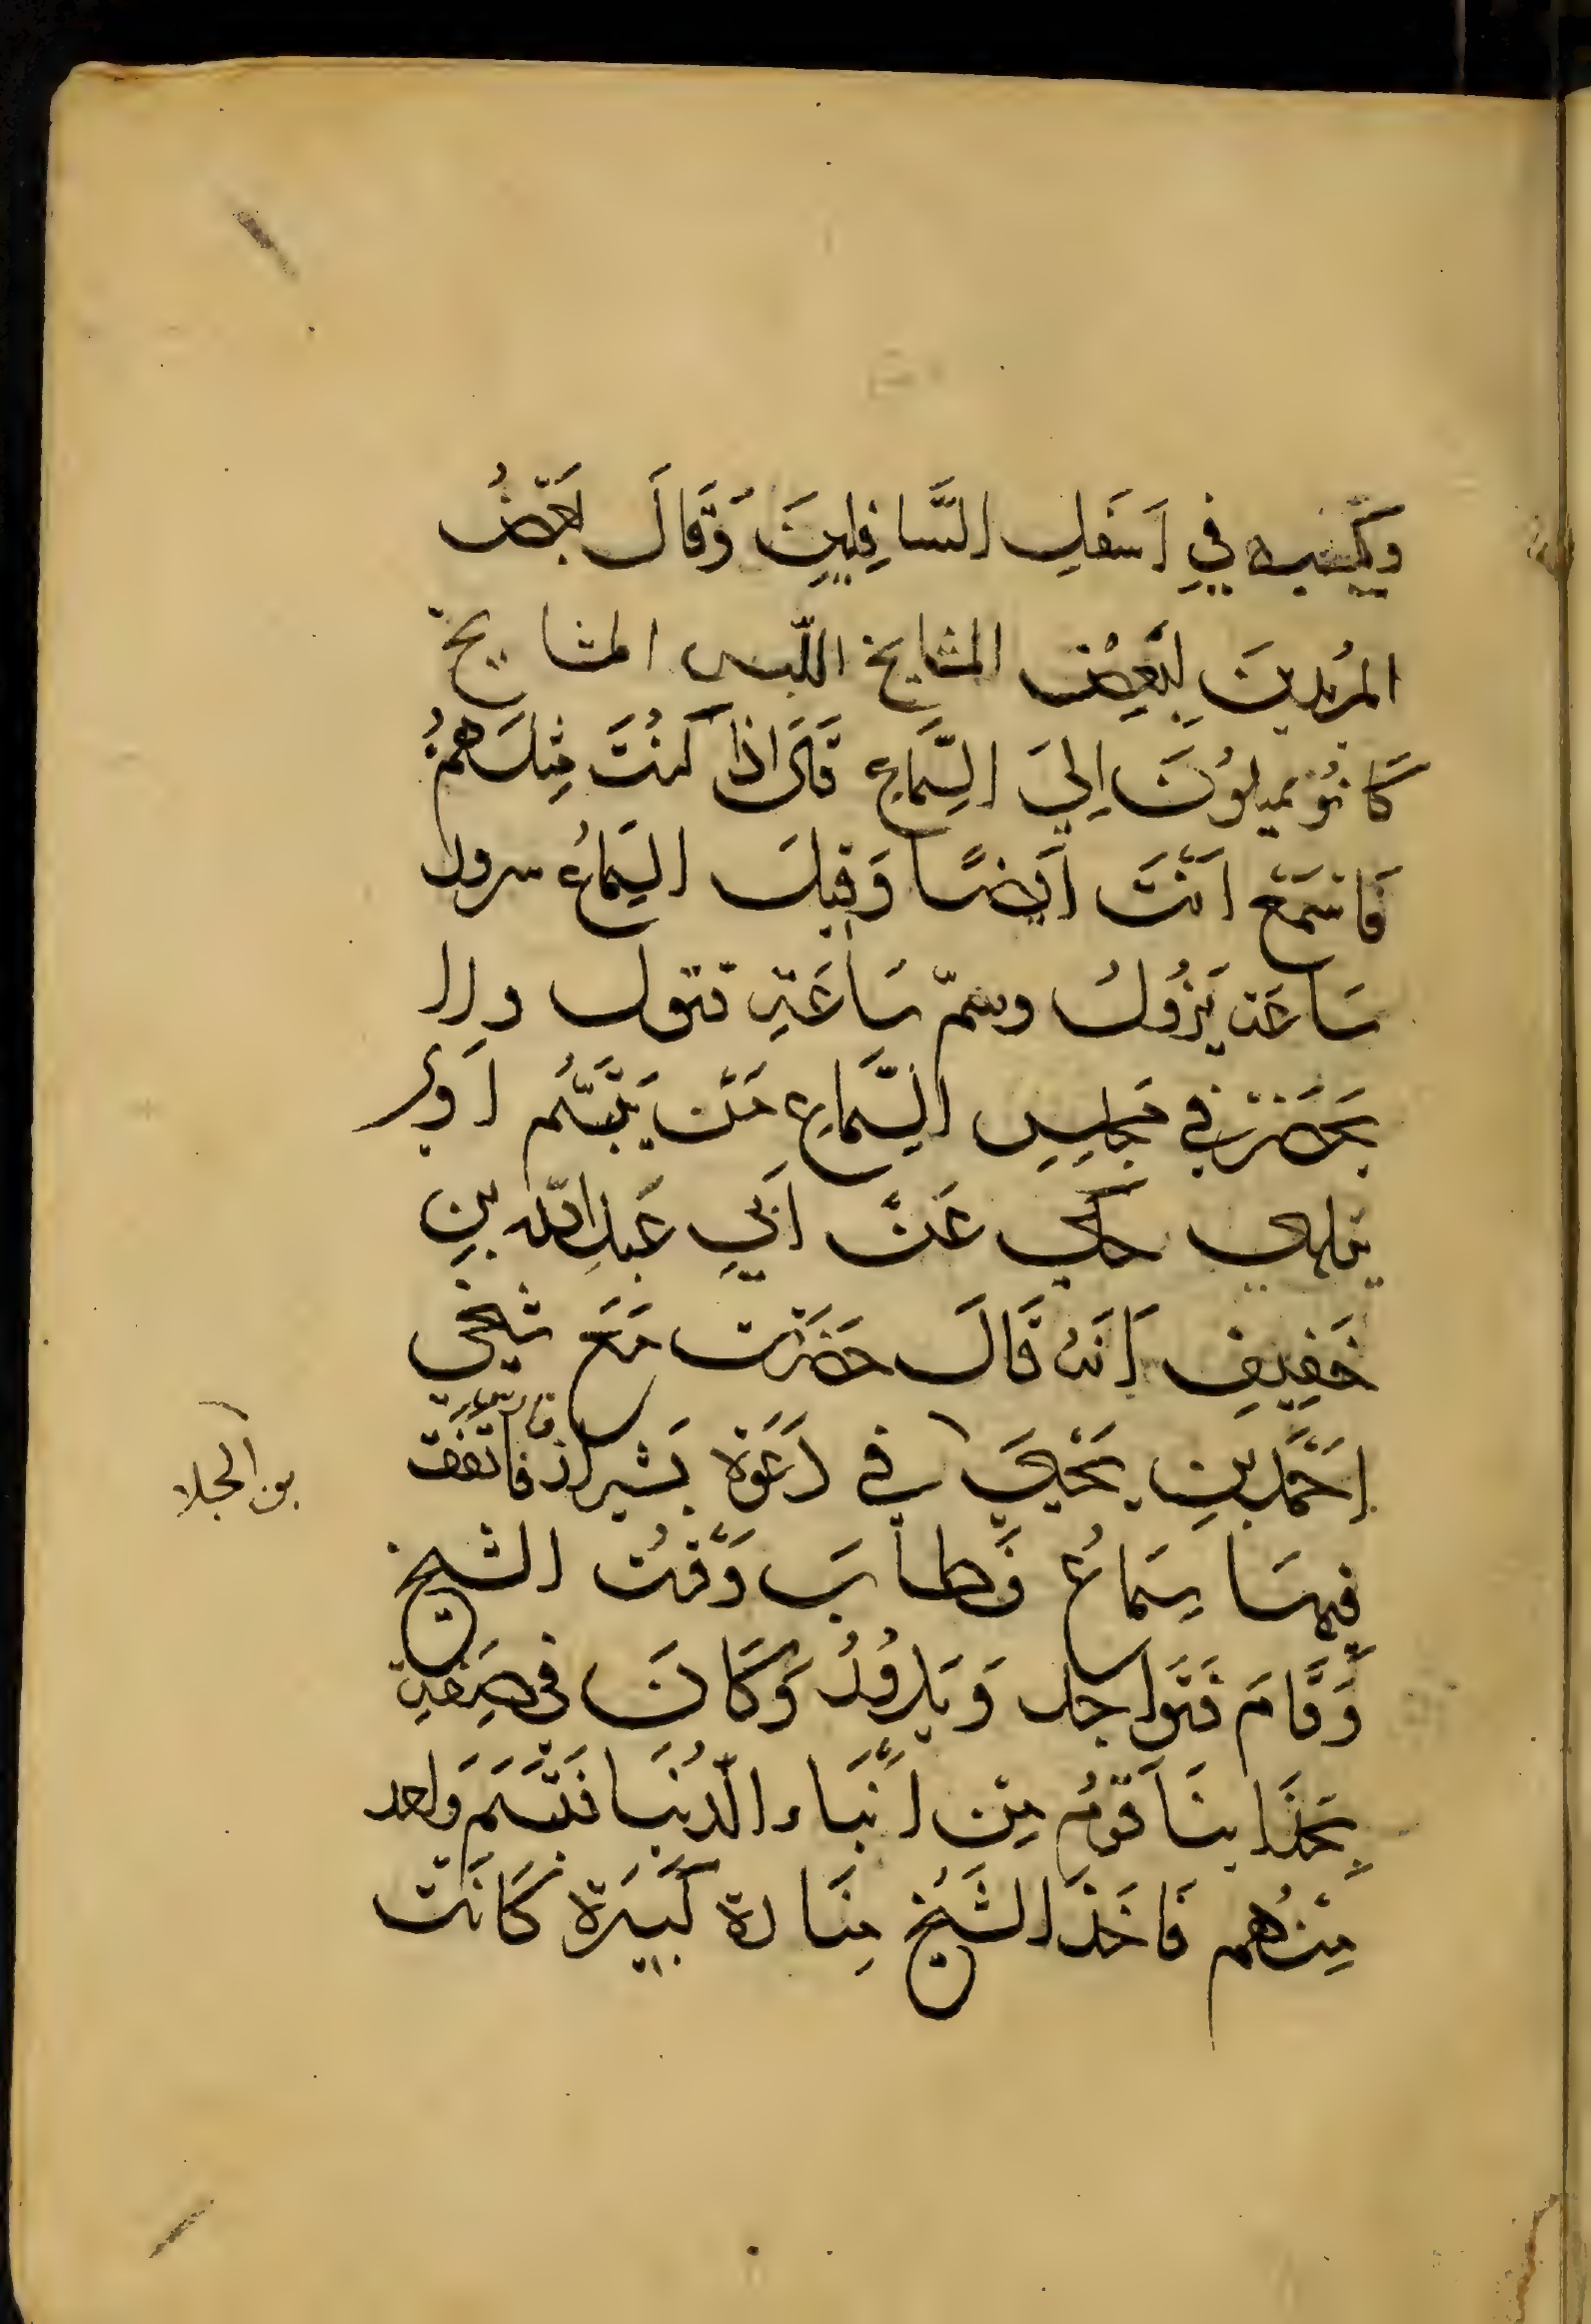 وَيكبه في اَسفَلِ السَّافِلِينَ وَقَالَ بَعْضُ
المرُيدينَ لِبَعْضِ المشايخ اللّيس المشايخ
كَانُو يميلوُنَ اِليَ السِّمَاعِ قَالَ اذا كنُتَ مِثلَهمُ
فَاسْمَعْ اَنْتَ اَيضًا وَقيلَ السِّمَاعُ سرور
سَاعَة يَزُولُ وسمّ سَاعَةٍ قتول ولا
يَحَضَرُ في مَجَاسِلِ السِّمَاعِ مَنْ يَتَبَسَّم اَو
يتلهي حكي عَنْ اَبي عَبدِ اللّه بنِ
خَفِيفٍ اَنَهُ قَالَ حَضَرَت مَعَ شيخي
اَحَمَد بنِ يَحْييَ في دَعَوَة بشيراز فاتفَقَ
فِيهَا سِمَاعُ فَطابَ وَقْتُ الشيخ
وَقَامَ فَتَواجد وَيَدوُرُ وَكَانَ في صِفَةٍ
بِحَذَاينَا قَومُ مِنْ اَبْنَاء الدُنيَا فَتَبَسَمَ واحد
مِنْهُم فَاَخَذَ الشَيْخ مِنَارة كَبيَرة كَانَت
بن الجلا